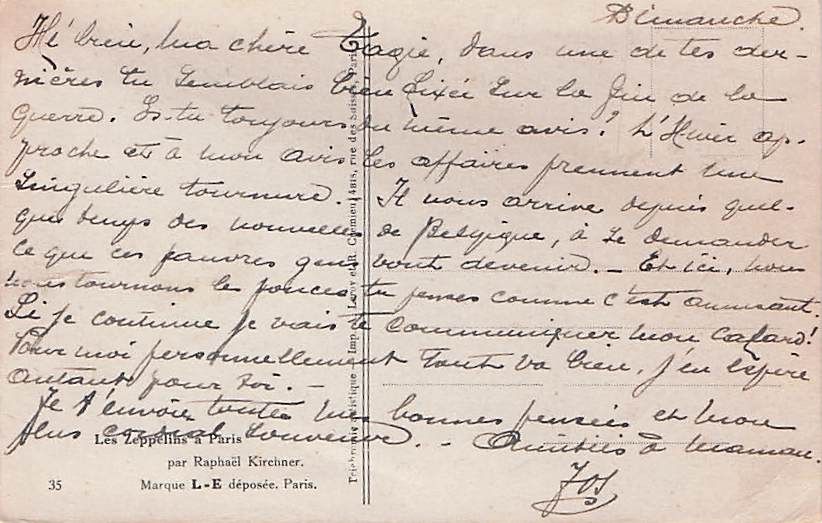 Dimanche.
Hé! bien, ma chère Magie, dans une de tes der-
nières tu semblais bien fixée sur la fin de la
guerre. Es-tu toujours du même avis? L'Hiver ap-
proche et à mon avis les affaires prennent une
singulière tournure. Il nous arrive depuis quel-
que temps des nouvelles de Belgique, à se demander
ce que ces pauvres gens vont devenir. _ Et ici, nous
nous tournons les pouces tu penses comme c'est amusant.
Si je continue je vais te communiquer mon cafard!
Pour moi personnellement tout va bien, j'en espère
autant pour toi. _
Je t'envoie toutes mes bonnes pensées et mon
plus cordial souvenir. _ Amitiés à maman.
Jos
Les Zeppelins à Paris
par Raphaël Kirchner.
35 Marque L-E déposée. Paris.
artistique — Imp. Leroy et R. Crémieu, rue des Suisses, Paris